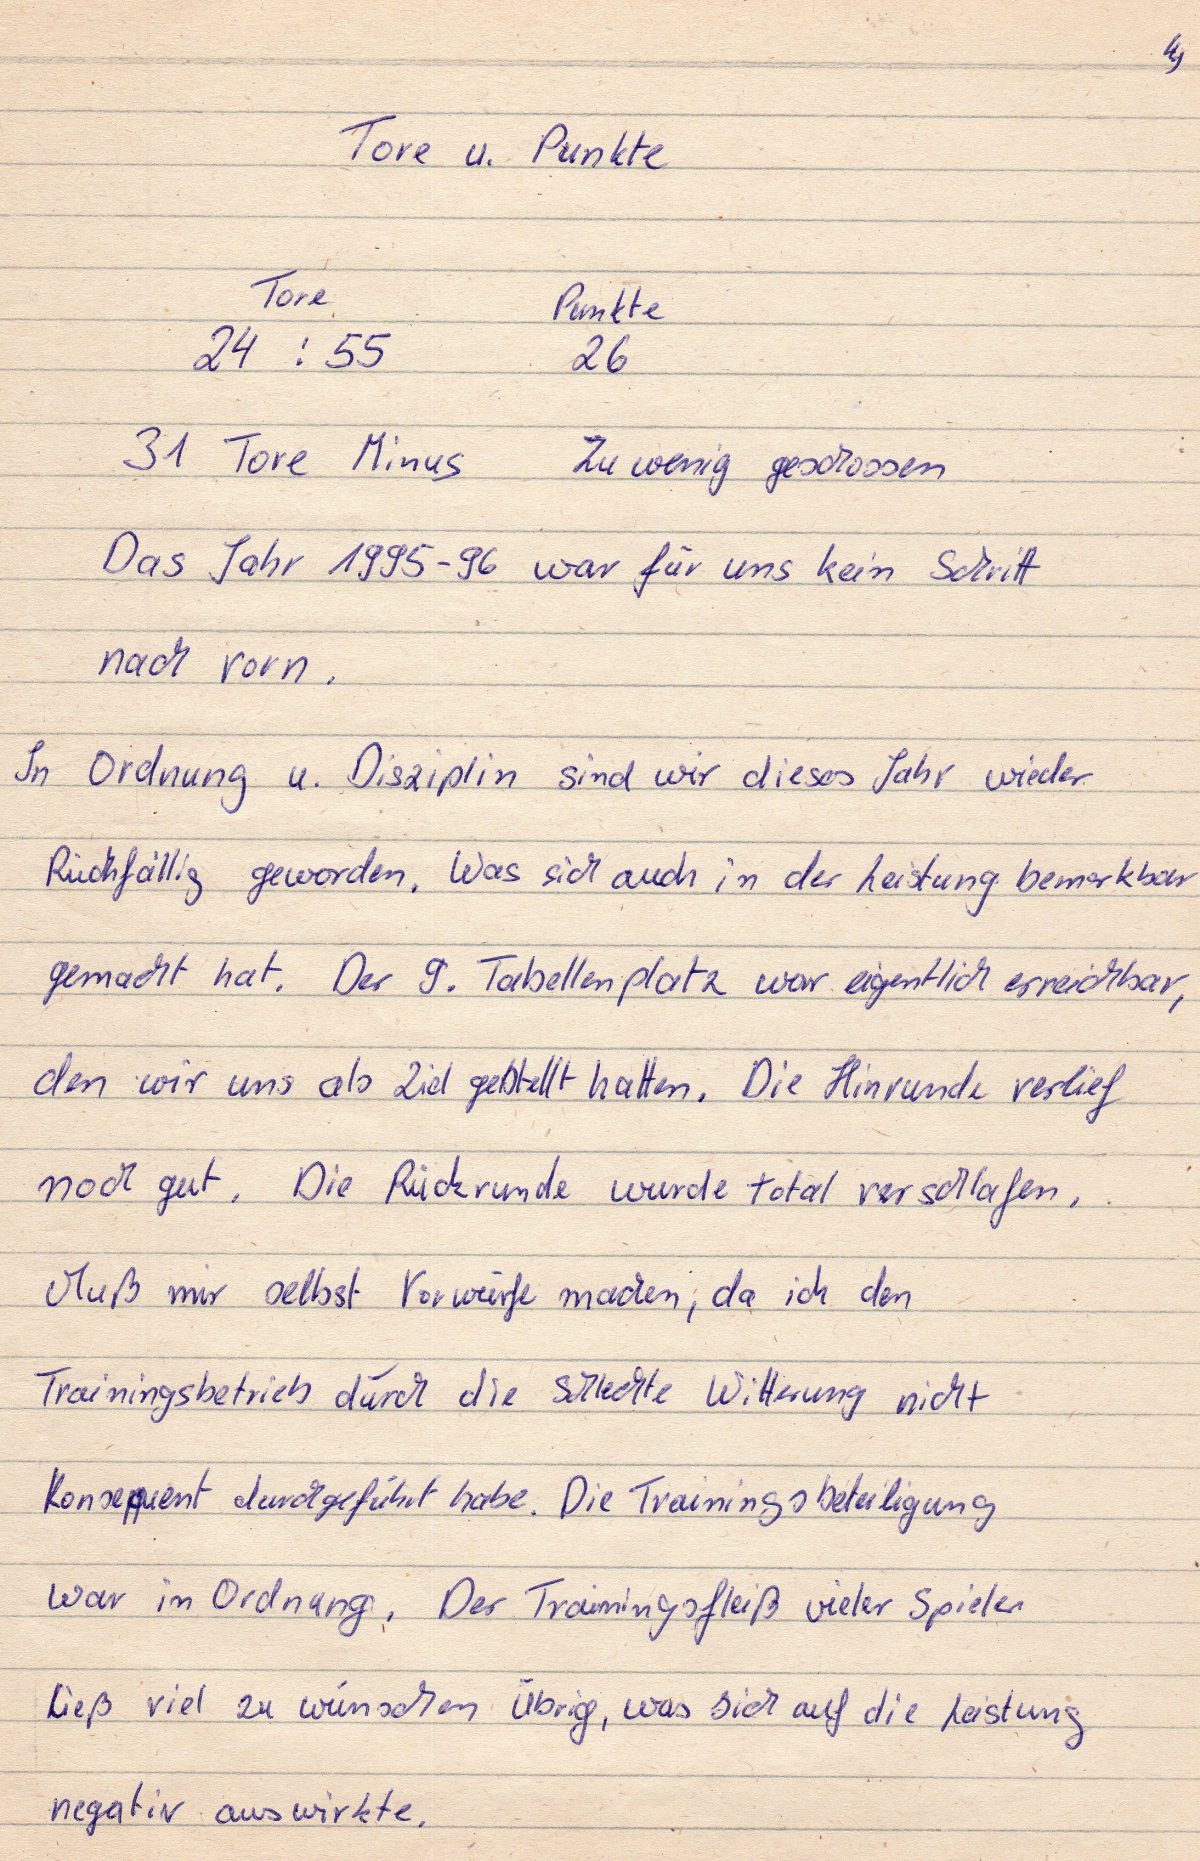 4,
Tore u. Punkte
Tore Punkte
24 : 55 26
31 Tore Minus Zu wenig geschossen
Das Jahr 1995-96 war für uns kein Schritt
nach vorn.
In Ordnung u. Disziplin sind wir dieses Jahr wieder
Rückfällig geworden. Was sich auch in der Leistung bemerkbar
gemacht hat. Der 9. Tabellenplatz war eigentlich erreichbar,
den wir uns als Ziel gestellt hatten. Die Hinrunde verlief
noch gut. Die Rückrunde wurde total verschlafen.
Muß mir selbst Vorwürfe machen, da ich den
Trainingsbetrieb durch die schlechte Witterung nicht
Konsequent durchgeführt habe. Die Trainingsbeteiligung
war in Ordnung. Der Trainingsfleiß vieler Spieler
Ließ viel zu wünschen Übrig, was sich auf die Leistung
negativ auswirkte.